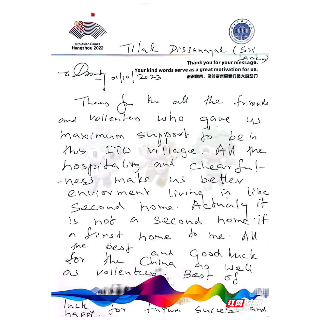 Hangzhou 2022
Tilak Dissanayak (Sri
Thank you for your message.
Your kind words serve as a great motivation for us.
01/10/2023
Thans for ko all the friends
and vollenters who gave us
maximum support to be in
this ITO village. All the
hospitality and clearful-
-ness make us better
enviorment living is like
Second home. Actualy it
is not a second home it
a first home to me. All
the Best and Good luck
for the China as well
as vollenters. Best of
luck for future and
happy